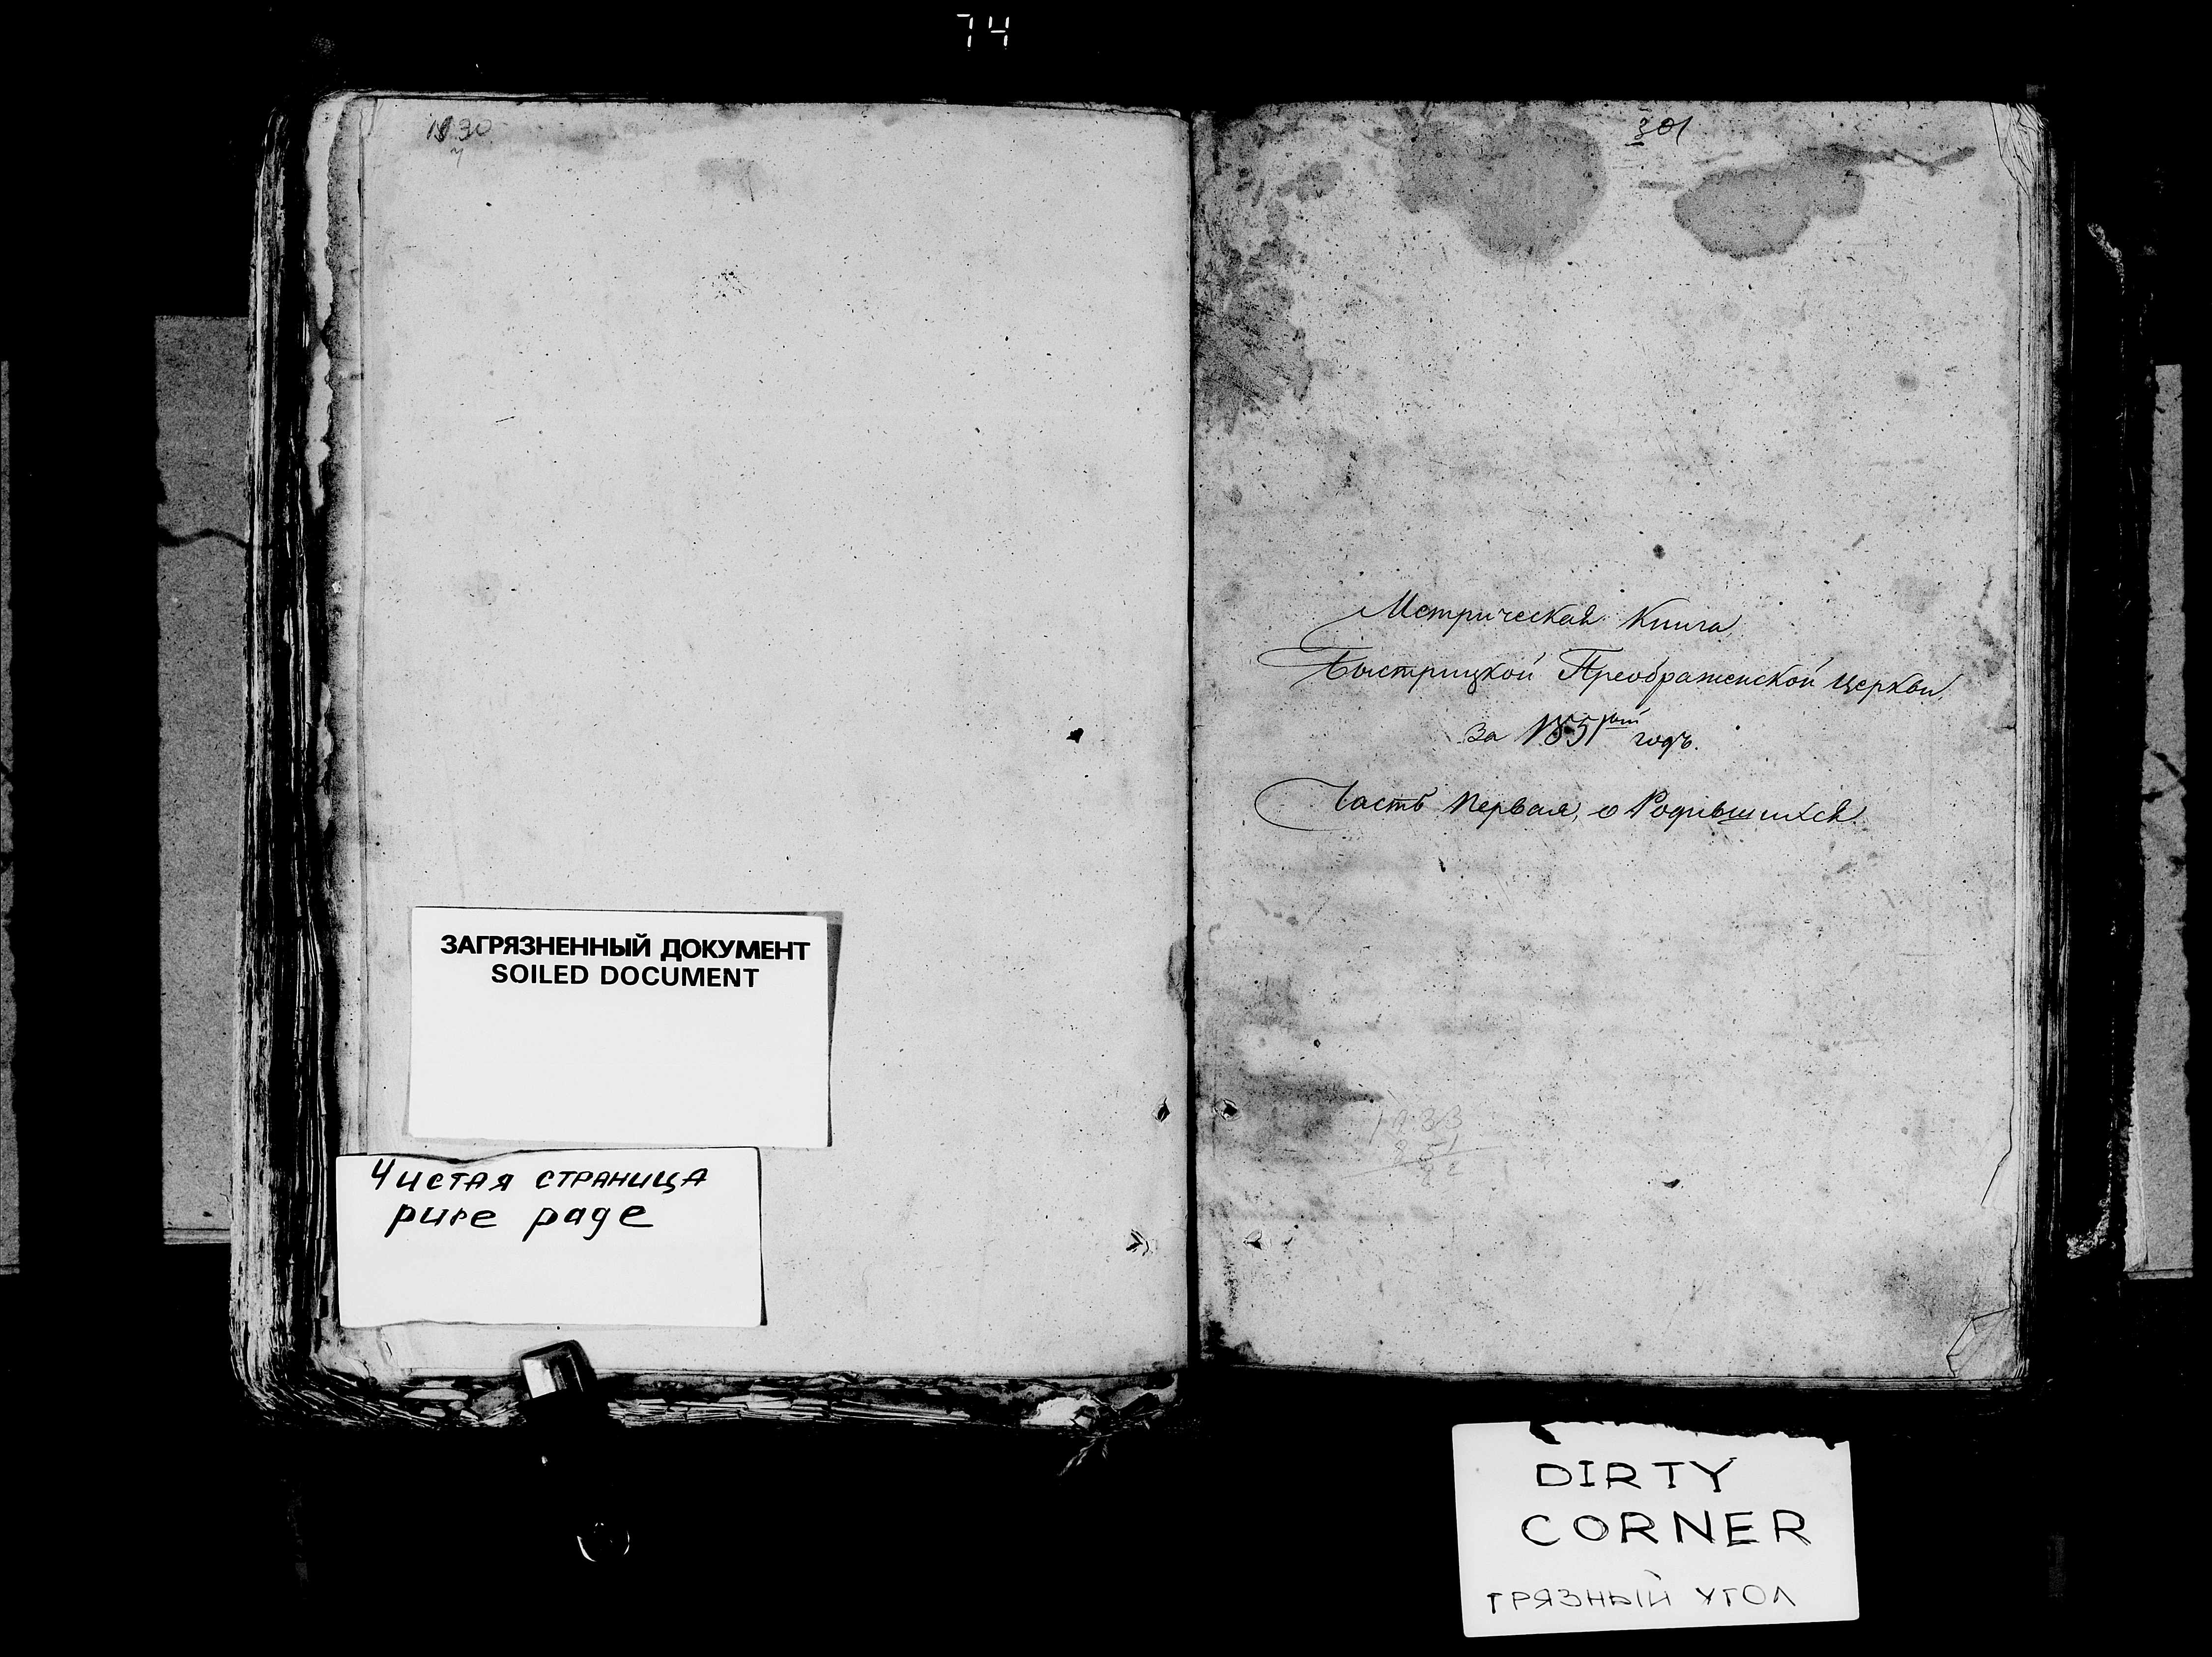 74
301
Метрическая Книга
Быстрицкой Преображенской Церкви
за 1851ый годъ.
Часть Первая, о Родившихся
ЗАГРЯЗНЕННЫЙ ДОКУМЕНТ
SOILED DOCUMENT
Чистая страница
pure page
DIRTY
CORNER
ГРЯЗНЫЙ УГОЛ